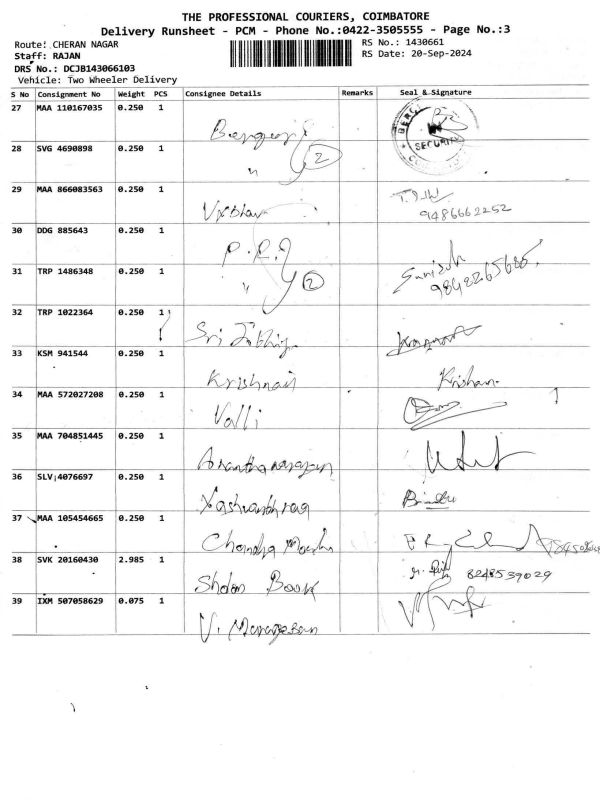 THE PROFESSIONAL COURIERS, COIMBATORE
Delivery Runsheet - PCM - Phone No.:0422-3505555 - Page No.:3
Route: CHERAN NAGAR RS No.: 1430661
Staff: RAJAN RS Date: 20-Sep-2024
DRS No.: DCJB143066103
Vehicle: Two Wheeler Delivery
S No Consignment No Weight PCS Consignee Details Remarks Seal & Signature
27 MAA 110167035 0.250 1
SECURITY
28 SVG 4690898 0.250 1
" 2
29 MAA 866083563 0.250 1
9486662252
30 DDG 885643 0.250 1
P.R.
31 TRP 1486348 0.250 1
" 2
32 TRP 1022364 0.250 1
Sri
33 KSM 941544 0.250 1
Krishnan
34 MAA 572027208 0.250 1
Valli
35 MAA 704851445 0.250 1
Anantha narayan
36 SLV 4076697 0.250 1
Yashvanth rag
37 MAA 105454665 0.250 1
Chandra
38 SVK 20160430 2.985 1
8248539029
Book
39 IXM 507058629 0.075 1
V.